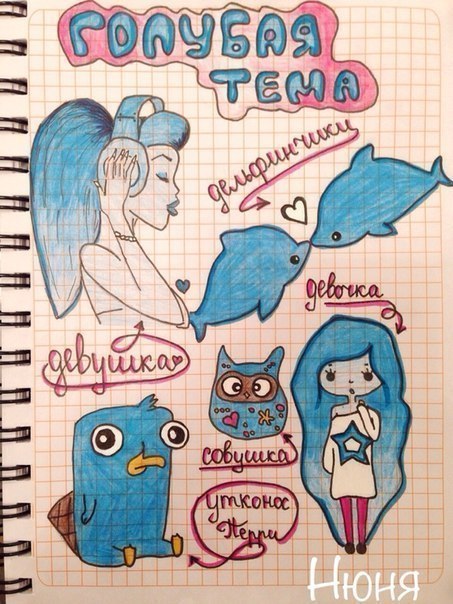 ГОЛУБАЯ
ТЕМА
дельфинчики
девочка
девушка
совушка
утконос
Перри
Нюня